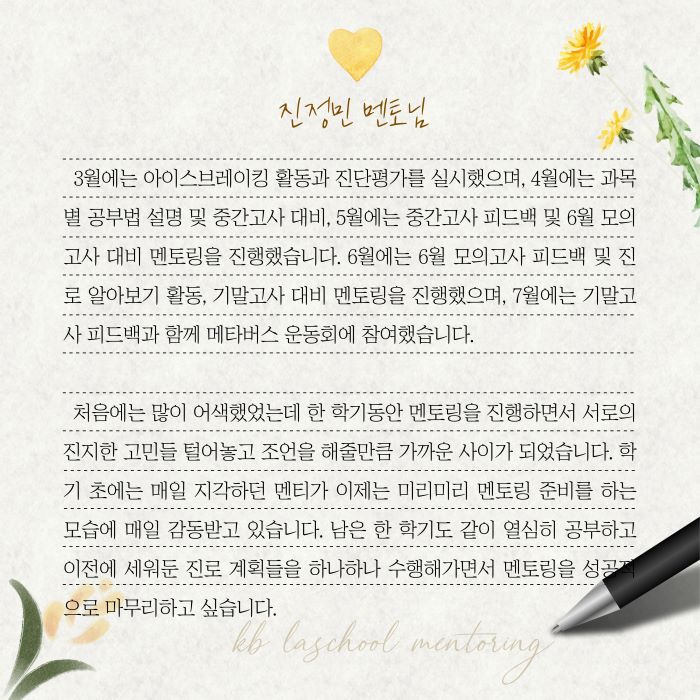 진정민 멘토님
3월에는 아이스브레이킹 활동과 진단평가를 실시했으며, 4월에는 과목
별 공부법 설명 및 중간고사 대비, 5월에는 중간고사 피드백 및 6월 모의
고사 대비 멘토링을 진행했습니다. 6월에는 6월 모의고사 피드백 및 진
로 알아보기 활동, 기말고사 대비 멘토링을 진행했으며, 7월에는 기말고
사 피드백과 함께 메타버스 운동회에 참여했습니다.
처음에는 많이 어색했었는데 한 학기동안 멘토링을 진행하면서 서로의
진지한 고민들 털어놓고 조언을 해줄만큼 가까운 사이가 되었습니다. 학
기 초에는 매일 지각하던 멘티가 이제는 미리미리 멘토링 준비를 하는
모습에 매일 감동받고 있습니다. 남은 한 학기도 같이 열심히 공부하고
이전에 세워둔 진로 계획들을 하나하나 수행해가면서 멘토링을 성공적
으로 마무리하고 싶습니다.
kb laschool mentoring